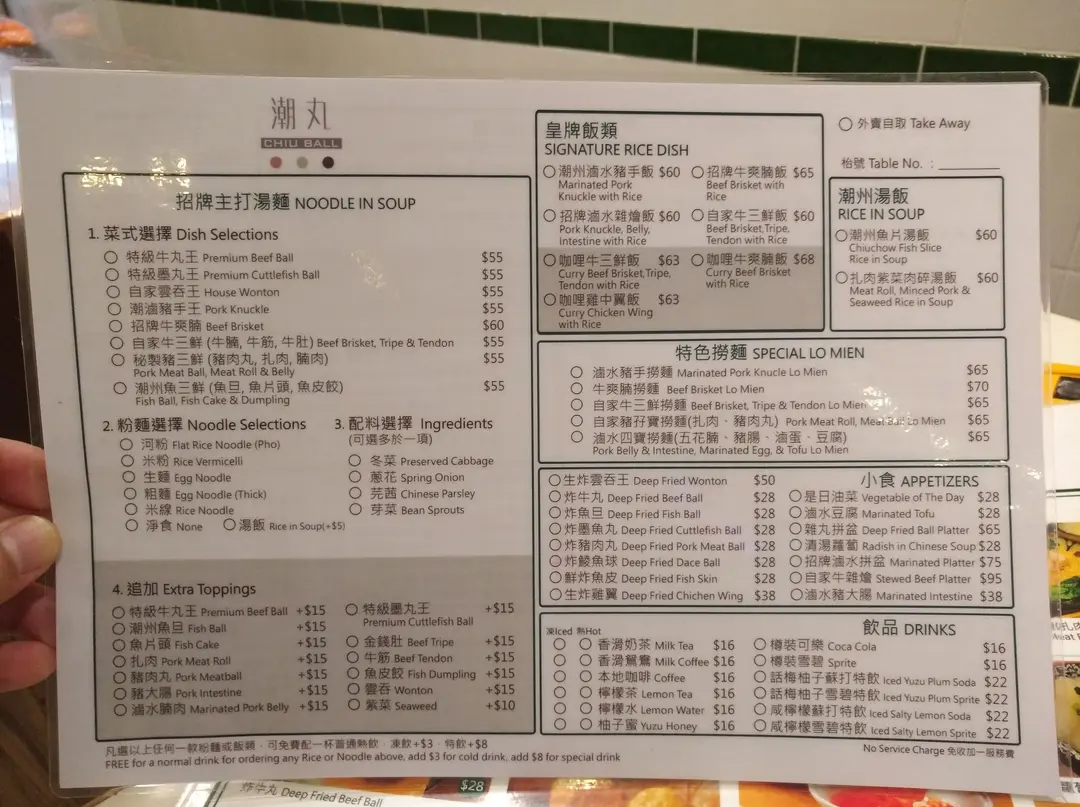 潮丸
CHIU BALL
招牌主打湯麵 NOODLE IN SOUP
1. 菜式選擇 Dish Selections
特級牛丸王 Premium Beef Ball $55
特級墨丸王 Premium Cuttlefish Ball $55
自家雲吞王 House Wonton $55
潮滷豬手王 Pork Knuckle $55
招牌牛爽腩 Beef Brisket $60
自家牛三鮮 (牛腩, 牛筋, 牛肚) Beef Brisket, Tripe & Tendon $55
秘製豬三鮮 (豬肉丸, 扎肉, 腩肉) $55
Pork Meat Ball, Meat Roll & Belly
潮州魚三鮮 (魚旦, 魚片頭, 魚皮餃) $55
Fish Ball, Fish Cake & Dumpling
2. 粉麵選擇 Noodle Selections
河粉 Flat Rice Noodle (Pho)
米粉 Rice Vermicelli
生麵 Egg Noodle
粗麵 Egg Noodle (Thick)
米線 Rice Noodle
淨食 None 湯飯 Rice in Soup(+$5)
3. 配料選擇 Ingredients
(可選多於一項)
冬菜 Preserved Cabbage
蔥花 Spring Onion
芫茜 Chinese Parsley
芽菜 Bean Sprouts
4. 追加 Extra Toppings
特級牛丸王 Premium Beef Ball +$15
潮州魚旦 Fish Ball +$15
魚片頭 Fish Cake +$15
扎肉 Pork Meat Roll +$15
豬肉丸 Pork Meatball +$15
豬大腸 Pork Intestine +$15
滷水腩肉 Marinated Pork Belly +$15
特級墨丸王 +$15
Premium Cuttlefish Ball
金錢肚 Beef Tripe +$15
牛筋 Beef Tendon +$15
魚皮餃 Fish Dumpling +$15
雲吞 Wonton +$15
紫菜 Seaweed +$10
凡選以上任何一款粉麵或飯類，可免費配一杯普通熱飲，凍飲+$3，特飲+$8
FREE for a normal drink for ordering any Rice or Noodle above, add $3 for cold drink, add $8 for special drink
皇牌飯類
SIGNATURE RICE DISH
潮州滷水豬手飯 $60
Marinated Pork
Knuckle with Rice
招牌滷水雜燴飯 $60
Pork Knuckle, Belly,
Intestine with Rice
咖哩牛三鮮飯 $63
Curry Beef Brisket,Tripe,
Tendon with Rice
咖哩雞中翼飯 $63
Curry Chicken Wing
with Rice
招牌牛爽腩飯 $65
Beef Brisket with
Rice
自家牛三鮮飯 $60
Beef Brisket,Tripe,
Tendon with Rice
咖哩牛爽腩飯 $68
Curry Beef Brisket
with Rice
外賣自取 Take Away
枱號 Table No. :
潮州湯飯
RICE IN SOUP
潮州魚片湯飯 $60
Chiuchow Fish Slice
Rice in Soup
扎肉紫菜肉碎湯飯 $60
Meat Roll, Minced Pork &
Seaweed Rice in Soup
特色撈麵 SPECIAL LO MIEN
滷水豬手撈麵 Marinated Pork Knucle Lo Mien $65
牛爽腩撈麵 Beef Brisket Lo Mien $70
自家牛三鮮撈麵 Beef Brisket, Tripe & Tendon Lo Mien $65
自家豬孖寶撈麵(扎肉、豬肉丸) Pork Meat Roll, Meat Ball Lo Mien $65
滷水四寶撈麵(五花腩、豬腸、滷蛋、豆腐) $65
Pork Belly & Intestine, Marinated Egg, & Tofu Lo Mien
小食 APPETIZERS
生炸雲吞王 Deep Fried Wonton $50
炸牛丸 Deep Fried Beef Ball $28
炸魚旦 Deep Fried Fish Ball $28
炸墨魚丸 Deep Fried Cuttlefish Ball $28
炸豬肉丸 Deep Fried Pork Meat Ball $28
炸鯪魚球 Deep Fried Dace Ball $28
鮮炸魚皮 Deep Fried Fish Skin $28
生炸雞翼 Deep Fried Chichen Wing $38
是日油菜 Vegetable of The Day $28
滷水豆腐 Marinated Tofu $28
雜丸拼盆 Deep Fried Ball Platter $65
清湯蘿蔔 Radish in Chinese Soup $28
招牌滷水拼盆 Marinated Platter $75
自家牛雜燴 Stewed Beef Platter $95
滷水豬大腸 Marinated Intestine $38
飲品 DRINKS
凍Iced 熱Hot
香滑奶茶 Milk Tea $16
香滑鴛鴦 Milk Coffee $16
本地咖啡 Coffee $16
檸檬茶 Lemon Tea $16
檸檬水 Lemon Water $16
柚子蜜 Yuzu Honey $16
樽裝可樂 Coca Cola $16
樽裝雪碧 Sprite $16
話梅柚子蘇打特飲 Iced Yuzu Plum Soda $22
話梅柚子雪碧特飲 Iced Yuzu Plum Sprite $22
咸檸檬蘇打特飲 Iced Salty Lemon Soda $22
咸檸檬雪碧特飲 Iced Salty Lemon Sprite $22
No Service Charge 免收加一服務費
炸牛丸 Deep Fried Beef Ball $28